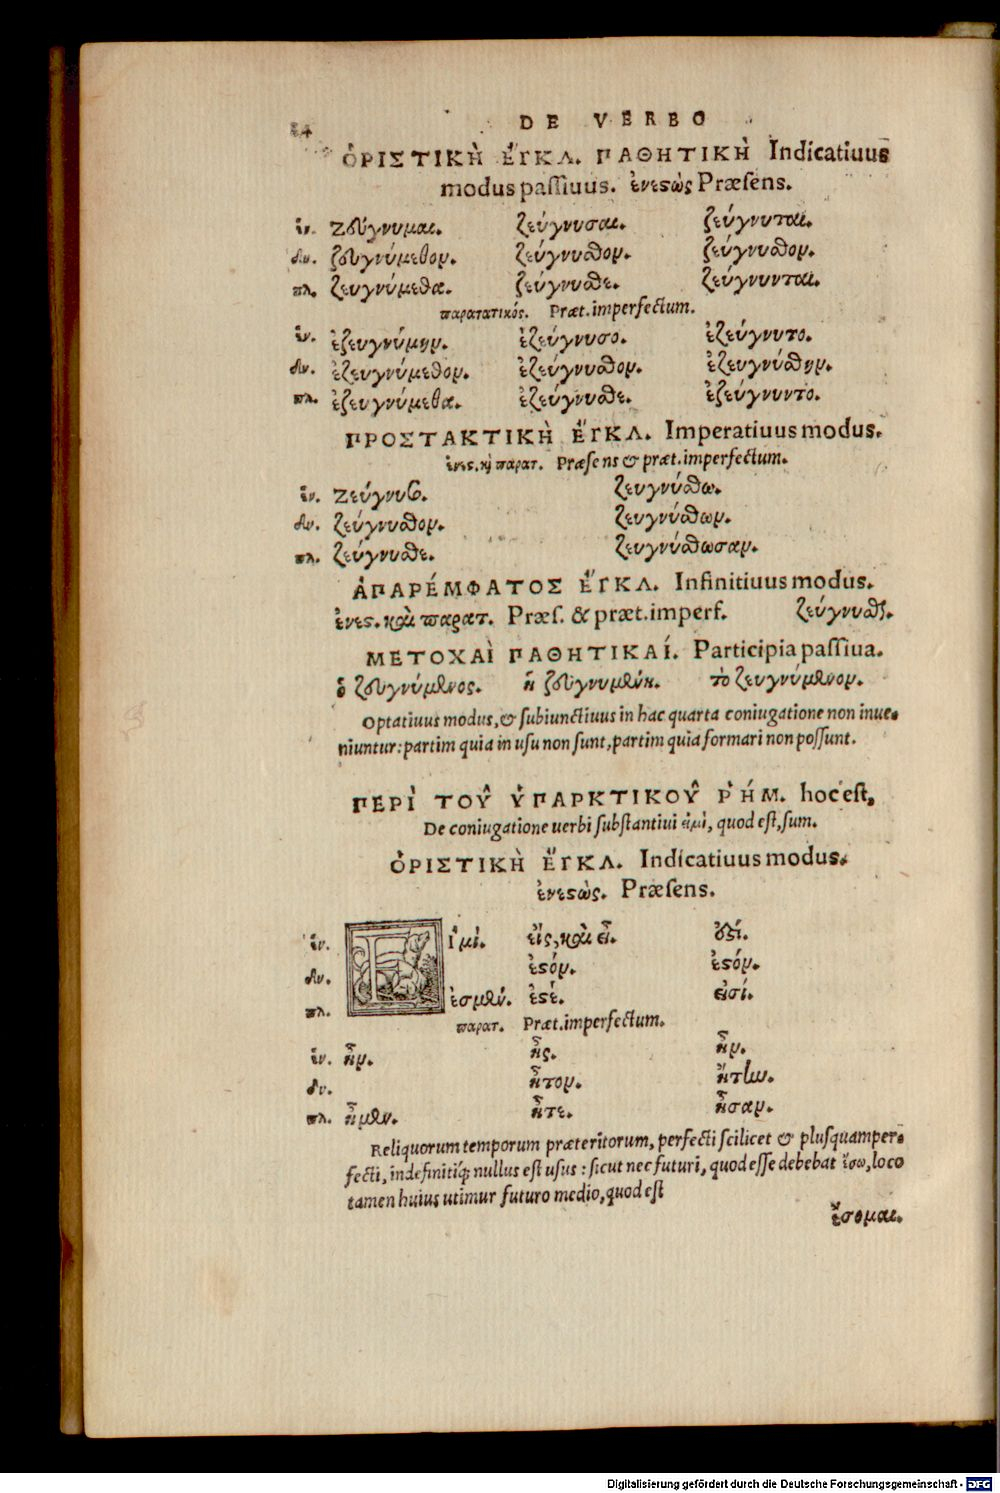 84 DE VERBO
ὉΡΙΣΤΙΚῊ ἜΓΚΛ. ΠΑΘΗΤΙΚῊ Indicatiuus
modus passiuus. ἐνεϛὼς Præsens.
ἑν. Ζεύγνυμαι. ζεύγνυσαι. ζεύγνυται.
δυ. ζευγνύμεθον. ζεύγνυσθον. ζεύγνυσθον.
πλ. ζευγνύμεθα. ζεύγνυσθε. ζεύγνυνται.
παρατατικός. Præt. imperfectum.
ἑν. ἐζευγνύμην. ἐζεύγνυσο. ἐζεύγνυτο.
δυ. ἐζευγνύμεθον. ἐζεύγνυσθον. ἐζευγνύσθην.
πλ. ἐζευγνύμεθα. ἐζεύγνυσθε. ἐζεύγνυντο.
ΠΡΟΣΤΑΚΤΙΚῊ ἜΓΚΛ. Imperatiuus modus.
ἐνεϛ. κỳ παρατ. Præsens & præt. imperfectum.
ἑν. Ζεύγνυσο. ζευγνύσθω.
δυ. ζεύγνυσθον. ζευγνύσθων.
πλ. ζεύγνυσθε. ζευγνύσθωσαν.
ἈΠΑΡΈΜΦΑΤΟΣ ἜΓΚΛ. Infinitiuus modus.
ἐνεϛ. καὶ παρατ. Præs. & præt. imperf. ζεύγνυσθαι.
ΜΕΤΟΧΑῚ ΠΑΘΗΤΙΚΑΊ. Participia passiua.
ὁ ζευγνύμενος. ἡ ζευγνυμένη. τὸ ζευγνύμενον.
Optatiuus modus, & subiunctiuus in hac quarta coniugatione non inue-
niuntur: partim quia in usu non sunt, partim quia formari non possunt.
ΠΕΡῚ ΤΟΥ͂ ὙΠΑΡΚΤΙΚΟΥ͂ ῬΉΜ. hoc est,
De coniugatione uerbi substantiui εἰμὶ, quod est, sum.
ὉΡΙΣΤΙΚῊ ἜΓΚΛ. Indicatiuus modus.
ἐνεϛὼς. Præsens.
ἑν. Εἰμὶ. εἲς, καὶ εἶ. ἐϛί.
δυ. ἐϛόν. ἐϛόν.
πλ. ἐσμέν. ἐϛέ. εἰσί.
παρατ. Præt. imperfectum.
ἑν. ἦν. ἦς. ἦν.
δυ. ἦτον. ἤτην.
πλ. ἦμεν. ἦτε. ἦσαν.
Reliquorum temporum præteritorum, perfecti scilicet & plusquamper-
fecti, indefinitiq́; nullus est usus: sicut nec futuri, quod esse debebat ἔσω, loco
tamen huius utimur futuro medio, quod est
ἔσομαι.
Digitalisierung gefördert durch die Deutsche Forschungsgemeinschaft - DFG